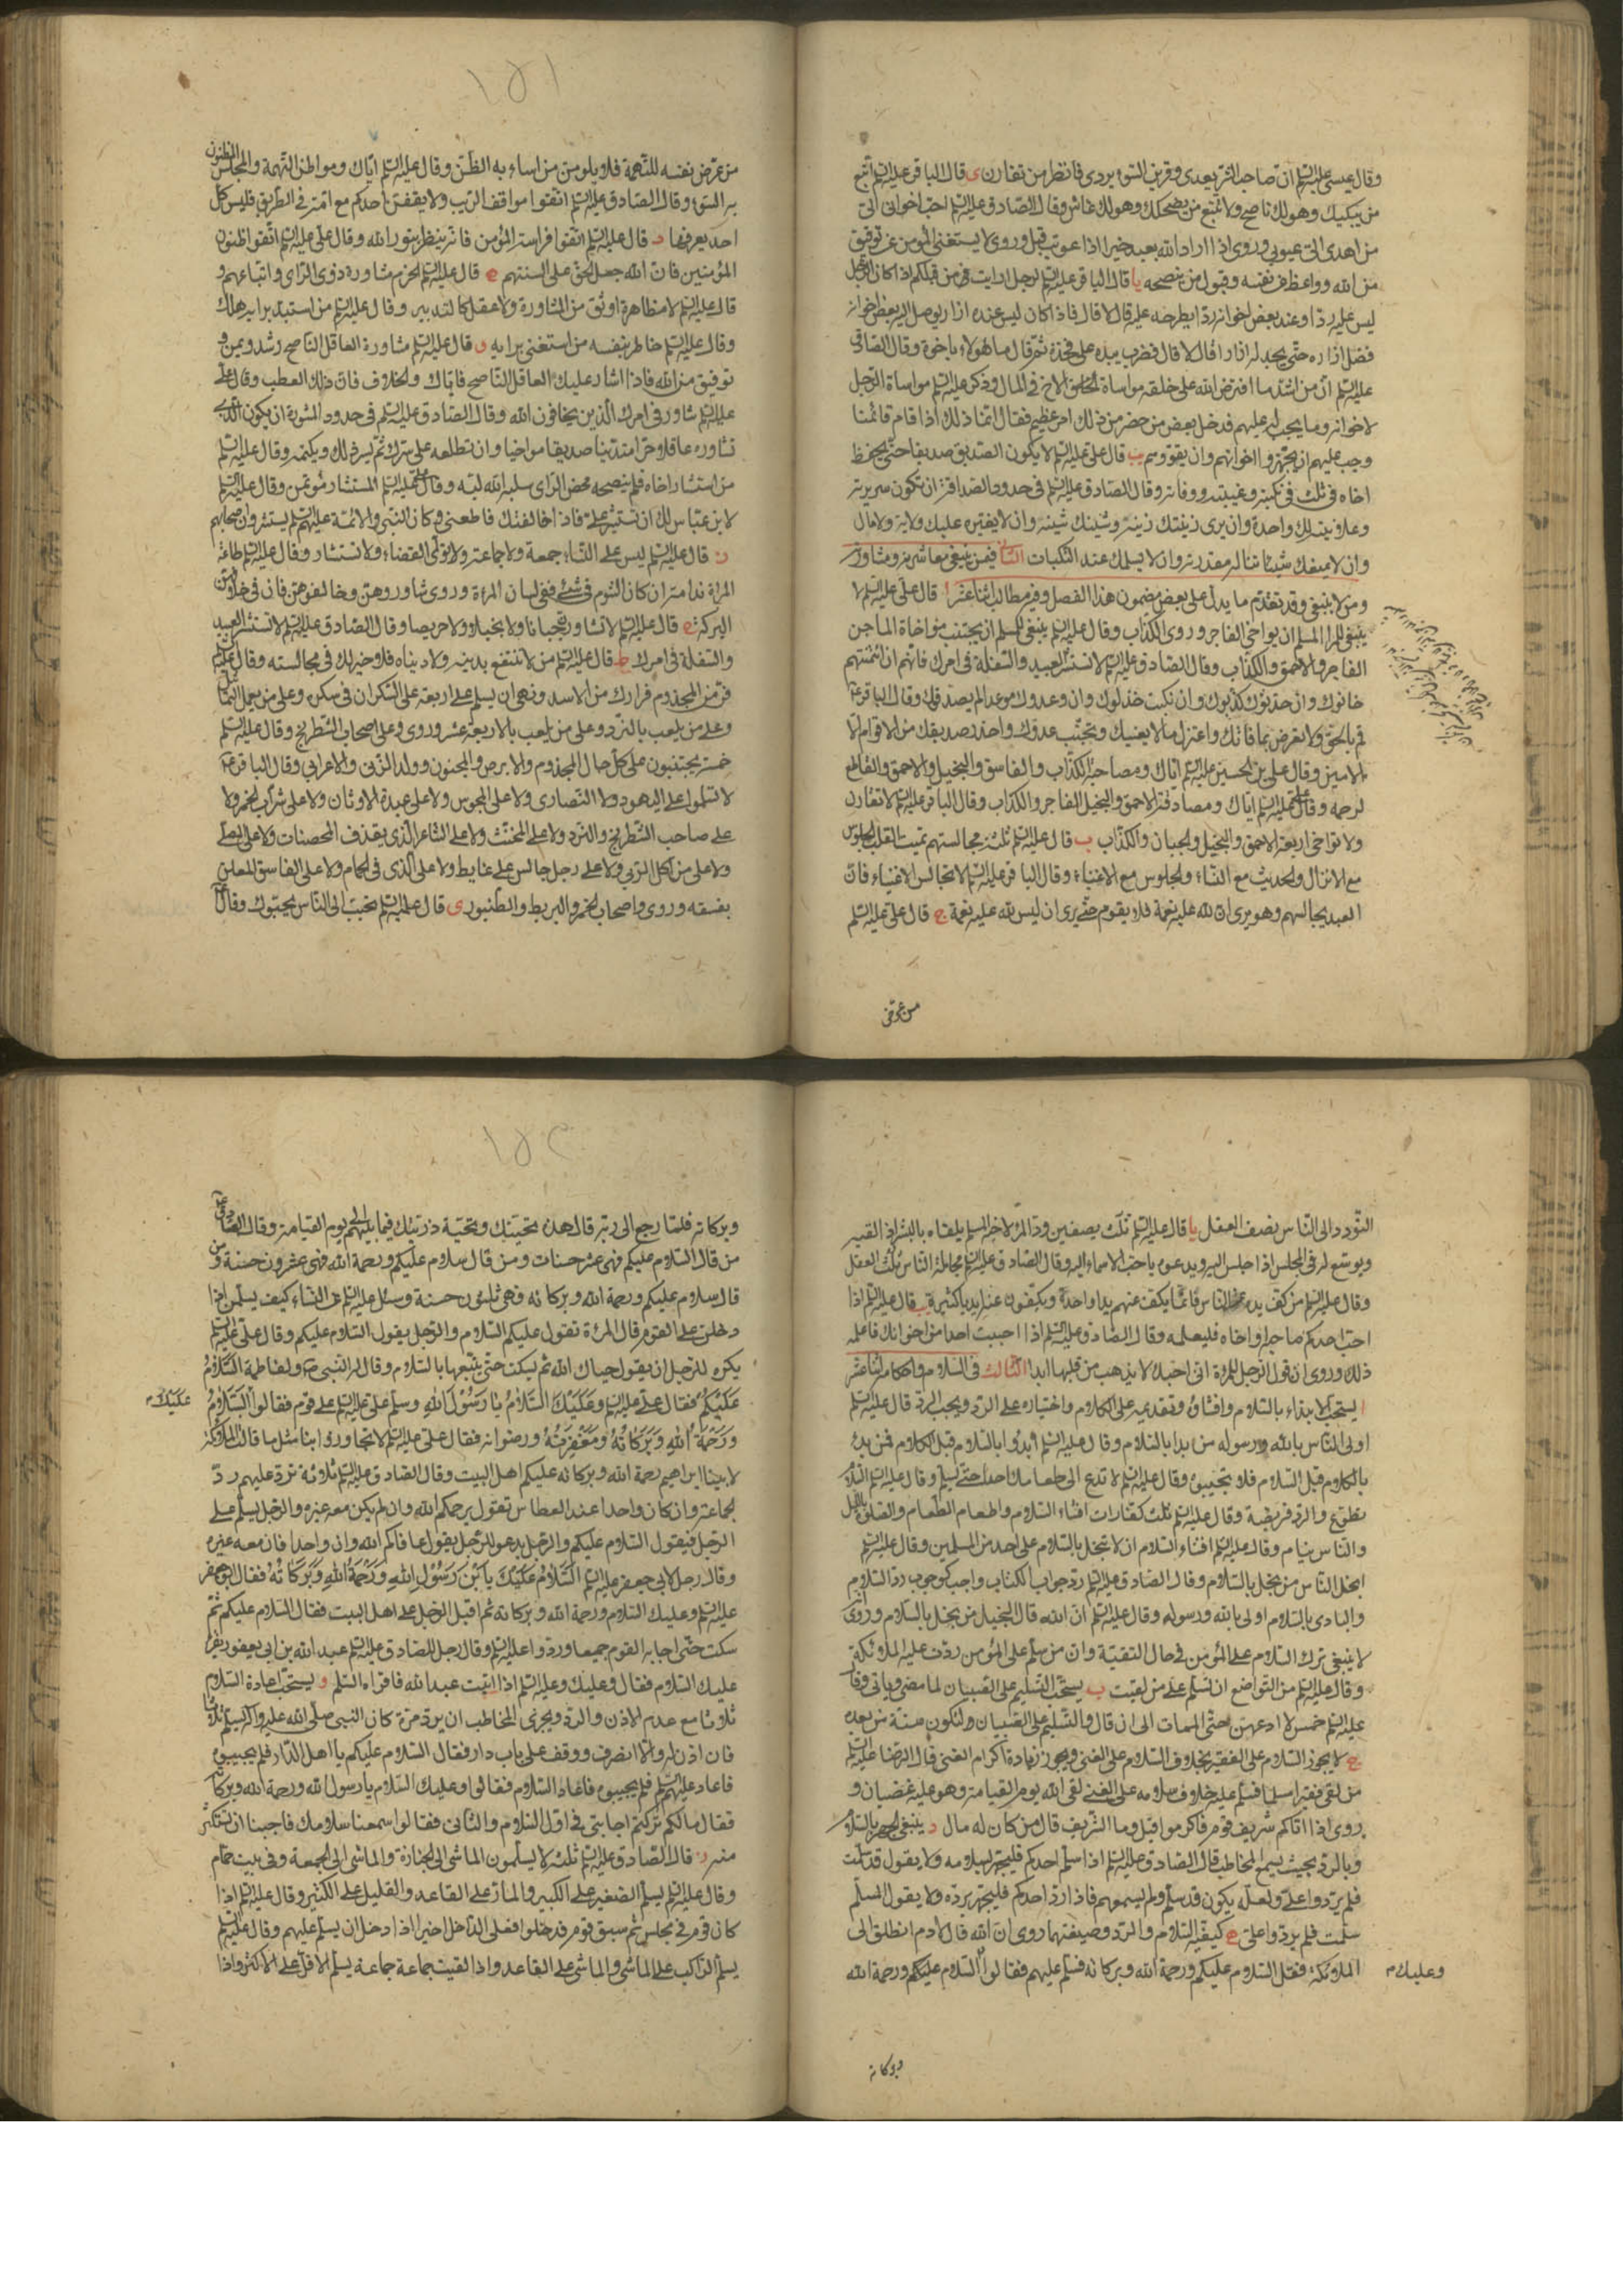 وقال عيسى عليه السلم ان صاحب الشر يعدى وقرين السوء يردى فانظر من تقارن ى قال الباقر عليه السلم اتبع
من يبكيك وهو لك ناصح ولا تتبع من يضحكك وهو لك غاش وقال الصادق عليه السلم احب اخوانى الى
من اهدى الى عيوبى وروى اذا اراد الله بعبد خيرا اذا عوتب قبل وروى لا يستغنى المؤمن عن توفيق
من الله وواعظ من نفسه وقبول من ينصحه يا قال الباقر عليه السلم لرجل ارايت من قبلكم اذا كان الرجل
ليس عليه ردا وعند بعض اخوانه ردا يطرحه عليه قال لا قال فاذا كان ليس عنده ازار يوصل اليه بعض اخوانه
فضل ازاره حتى يجد له ازارا قال لا قال فضرب بيده على فخذه ثم قال ما هؤلاء باخوة وقال الصادق
عليه السلم ان من اشد ما افترض الله على خلقه مواساة الاخ فى المال وذكر عليه السلم مواساة الرجل
لاخوانه وما يجب له عليهم فدخل بعض من حضر من ذلك امر عظيم فقال انما ذلك اذا قام قائمنا
وجب عليهم ان يجهزوا اخوانهم وان يقووهم يب قال على عليه السلم لا يكون الصديق صديقا حتى يحفظ
اخاه فى ثلث فى نكبته وغيبته ووفاته وقال الصادق عليه السلم فى حدود الصداقة ان تكون سريرته
وعلانيته لك واحدة وان يرى زينتك زينه وشينك شينه وان لا يغيره عليك ولاية ولا مال
وان لا يمنعك شيئا تناله مقدرته وان لا يسلمك عند النكبات الثانى فيمن ينبغى معاشرته ومشاورته
ومن لا ينبغى وقد تقدم ما يدل على بعض مضمون هذا الفصل وفيه مطالب اثنا عشر ا قال على عليه السلم لا
ينبغى للمرا المسلم ان يواخى الفاجر وروى الكذاب وقال عليه السلم ينبغى للمسلم ان يجتنب مؤاخاة الماجن
الفاجر والاحمق والكذاب وقال الصادق عليه السلم لا تستشر العبيد والسفلة فى امرك فانهم ان ائتمنتهم
خانوك وان حدثوك كذبوك وان نكبت خذلوك وان وعدوك موعدا لم يصدقوك وقال الباقر ع
قم بالحق ولا تعرض بما فاتك واعتزل ما لا يعنيك وتجنب عدوك واحذر صديقك من الاقوام الا
الامين وقال على بن الحسين عليه السلم اياك ومصاحبة الكذاب والفاسق والبخيل والاحمق والقاطع
لرحمه وقال على عليه السلم اياك ومصادقة الاحمق والبخيل الفاجر والكذاب وقال الباقر عليه السلم لا تقارن
ولا تواخى اربعة الاحمق والبخيل والجبان والكذاب ب قال عليه السلم ثلثة مجالستهم تميت القلب الجلوس
مع الانذال والحديث مع النساء والجلوس مع الاغنياء وقال الباقر عليه السلم لا تجالس الاغنياء فان
العبد يجالسهم وهو يرى ان لله عليه نعمة فلا يقوم حتى يرى ان ليس لله عليه نعمة ج قال على عليه السلم
من عرض
١٥١
من عرض نفسه للتهمة فلا يلومن من اساء به الظن وقال عليه السلم اياك ومواطن التهمة والمجلس المظنون
به السوء وقال الصادق عليه السلم اتقوا مواقف الريب ولا يقفن احدكم مع امه فى الطريق فليس كل
احد يعرفها د قال عليه السلم اتقوا فراسة المؤمن فانه ينظر بنور الله وقال على عليه السلم اتقوا ظنون
المؤمنين فان الله جعل الحق على السنتهم ه قال عليه السلم الحزم مشاورة ذوى الراى واتباعهم و
قال عليه السلم لا مظاهرة اوثق من المشاورة ولا عقل كالتدبير وقال عليه السلم من استبد برايه هلك
وقال عليه السلم خاطر بنفسه من استغنى برايه و قال عليه السلم مشاورة العاقل الناصح رشد ويمن و
توفيق من الله فاذا اشار عليك العاقل الناصح فاياك والخلاف فان ذلك العطب وقال على
عليه السلم شاور فى امرك الذين يخافون الله وقال الصادق عليه السلم فى حدود المشورة ان يكون الذى
تشاوره عاقلا حرا متدينا صديقا مواخيا وان تطلعه على سرك ثم يسر ذلك ويكتمه وقال عليه السلم
من استشار اخاه فلم ينصحه محض الراى سلبه الله لبه وقال على عليه السلم المستشار مؤتمن وقال عليه السلم
لابن عباس لك ان تشير على فاذا خالفتك فاطعنى وكان النبى والائمة عليهم السلم يستشيرون اصحابهم
ز قال عليه السلم ليس على النساء جمعة ولا جماعة ولا تولى القضاء ولا تستشار وقال عليه السلم طاعة
المراة ندامة ان كان الشوم فى شئ ففى لسان المراة وروى شاوروهن وخالفوهن فان فى خلافهن
البركة ح قال عليه السلم لا تشاورن جبانا ولا بخيلا ولا حريصا وقال الصادق عليه السلم لا تستشر العبيد
والسفلة فى امرك ط قال عليه السلم من لا تنتفع بدينه ولا دنياه فلا خير لك فى مجالسته وقال عليه السلم
فر من المجذوم فرارك من الاسد ونهى ان يسلم على اربعة على السكران فى سكره وعلى من يعمل التماثيل
وعلى من يلعب بالنرد وعلى من يلعب بالاربعة عشر وروى وعلى اصحاب الشطرنج وقال عليه السلم
خمسة يجتنبون على كل حال المجذوم والابرص والمجنون وولد الزنى والاعرابى وقال الباقر ع
لا تسلموا على اليهود ولا النصارى ولا على المجوس ولا على عبدة الاوثان ولا على شراب الخمر ولا
على صاحب الشطرنج والنرد ولا على المخنث ولا على الشاعر الذى يقذف المحصنات ولا على المصلى
ولا على من اكل الربى ولا على رجل جالس على غايط ولا على الذى فى الحمام ولا على الفاسق المعلن
بفسقه وروى واصحاب الخمر والبربط والطنبور ى قال عليه السلم تحبب الى الناس يحبوك وقال
التودد الى الناس نصف العقل يا قال عليه السلم ثلث يصفين ود المرء لاخيه المسلم يلقاه بالبشر اذا لقيه
ويوسع له فى المجلس اذا جلس اليه ويدعوه باحب الاسماء اليه وقال الصادق عليه السلم مجاملة الناس ثلث العقل
وقال عليه السلم من كف يده عن الناس فانما يكف عنهم يدا واحدة ويكفون عنه ايديا كثيرة يب قال عليه السلم اذا
احب احدكم صاحبه او اخاه فليعلمه وقال الصادق عليه السلم اذا احببت احدا من اخوانك فاعلمه
ذلك وروى ان قول الرجل للمراة انى احبك لا يذهب من قلبها ابدا الثالث فى السلام واحكامه اثنا عشر
ا يستحب الابتداء بالسلام وافشاؤه وتقديمه على الكلام واختياره على الرد ويجب الرد قال عليه السلم
اولى الناس بالله ورسوله من بدا بالسلام وقال عليه السلم ابدؤا بالسلام قبل الكلام فمن بدء
بالكلام قبل السلام فلا تجيبوه وقال عليه السلم لا تدع الى طعامك احدا حتى يسلم وقال عليه السلم السلام
تطوع والرد فريضة وقال عليه السلم ثلث كفارات افشاء السلام واطعام الطعام والصلوة بالليل
والناس نيام وقال عليه السلم افشاء السلام ان لا تبخل بالسلام على احد من المسلمين وقال عليه السلم
ابخل الناس من بخل بالسلام وقال الصادق عليه السلم رد جواب الكتاب واجب كوجوب رد السلام
والبادى بالسلام اولى بالله ورسوله وقال عليه السلم ان الله قال البخيل من يبخل بالسلام وروى
لا ينبغى ترك السلام على المؤمن فى حال التقية وان من سلم على المؤمن ردت عليه الملائكة
وقال عليه السلم من التواضع ان تسلم على من لقيت ب يستحب التسليم على الصبيان لما مضى وياتى وقال
عليه السلم خمس لا ادعهن حتى الممات الى ان قال والتسليم على الصبيان ولتكون سنة من بعدى
ج لا يجوز السلام على الفقير بخلاف السلام على الغنى ويجوز زيادة اكرام الغنى قال الرضا عليه السلم
من لقى فقيرا مسلما فسلم عليه خلاف سلامه على الغنى لقى الله يوم القيامة وهو عليه غضبان و
روى اذا اتاكم شريف قوم فاكرموا قيل وما الشريف قال من كان له مال د ينبغى الجهر بالسلام
وبالرد بحيث يسمع المخاطب قال الصادق عليه السلم اذا سلم احدكم فليجهر بسلامه ولا يقول قد سلمت
فلم يردوا على ولعله يكون قد سلم ولم يسمعهم فاذا رد احدكم فليجهر برده ولا يقول المسلم
سلمت فلم يردوا على ه كيفية السلام والرد وصيغتهما روى ان الله قال لادم انطلق الى
الملائكة فقل السلام عليكم ورحمة الله وبركاته فسلم عليهم فقالوا السلام عليكم ورحمة الله
وعليك م
وبركاته
١٥٢
وبركاته فلما رجع الى ربه قال هذه تحيتك وتحية ذريتك فيما بينهم الى يوم القيامة وقال الصادق
من قال السلام عليكم فهى عشر حسنات ومن قال سلام عليكم ورحمة الله فهى عشرون حسنة ومن
قال سلام عليكم ورحمة الله وبركاته فهى ثلثون حسنة وسئل عليه السلم عن النساء كيف يسلمن اذا
دخلن على القوم قال المرئة تقول عليكم السلام والرجل يقول السلام عليكم وقال على عليه السلم
يكره للرجل ان يقول حياك الله ثم يسكت حتى يتبعها بالسلام وقال له النبى ص ولفاطمة السلام
عليكم فقال على عليه السلم وعليك السلام يا رسول الله وسلم على عليه السلم على قوم فقالوا السلام
عليك م
ورحمة الله وبركاته ومغفرته ورضوانه فقال على عليه السلم لا تجاوزوا بنا مثل ما قالت الملائكة
لابينا ابراهيم رحمة الله وبركاته عليكم اهل البيت وقال الصادق عليه السلم ثلاثة ترد عليهم رد
الجماعة وان كان واحدا عند العطاس تقول يرحمكم الله وان لم يكن معه غيره والرجل يسلم على
الرجل فيقول السلام عليكم والرجل يدعو للرجل يقول عافاكم الله وان واحدا فان معه غيره
وقال رجل لابى جعفر عليه السلم السلام عليك يا بن رسول الله ورحمة الله وبركاته فقال ابو جعفر
عليه السلم وعليك السلام ورحمة الله وبركاته ثم اقبل الرجل على اهل البيت فقال السلام عليكم ثم
سكت حتى اجابه القوم جميعا وردوا عليه السلم وقال رجل للصادق عليه السلم عبد الله بن ابى يعفور يقرا
عليك السلام فقال وعليك وعليه السلم اذا اتيت عبد الله فاقراه السلم و يستحب اعادة السلام
ثلاثا مع عدم الاذن والرد ويجزى المخاطب ان يرد مرة كان النبى صلى الله عليه وآله يسلم ثلاثا
فان اذن له والا انصرف ووقف على باب دار فقال السلام عليكم يا اهل الدار فلم يجيبوه
فاعاد عليهم السلم فلم يجيبوه فاعاد السلام فقالوا وعليك السلام يا رسول الله ورحمة الله وبركاته
فقال ما لكم تركتم اجابتى فى اول السلام والثانى فقالوا سمعنا سلامك فاحببنا ان نستكثر
منه ز قال الصادق عليه السلم ثلثة لا يسلمون الماشى الى الجنازة والماشى الى الجمعة وفى بيت حمام
وقال عليه السلم يسلم الصغير على الكبير والمار على القاعد والقليل على الكثير وقال عليه السلم اذا
كان قوم فى مجلس ثم سبق قوم فدخلوا فعلى الداخل اخيرا اذا دخل ان يسلم عليهم وقال عليه السلم
يسلم الراكب على الماشى والماشى على القاعد واذا لقيت جماعة جماعة يسلم الاقل على الاكثر واذا